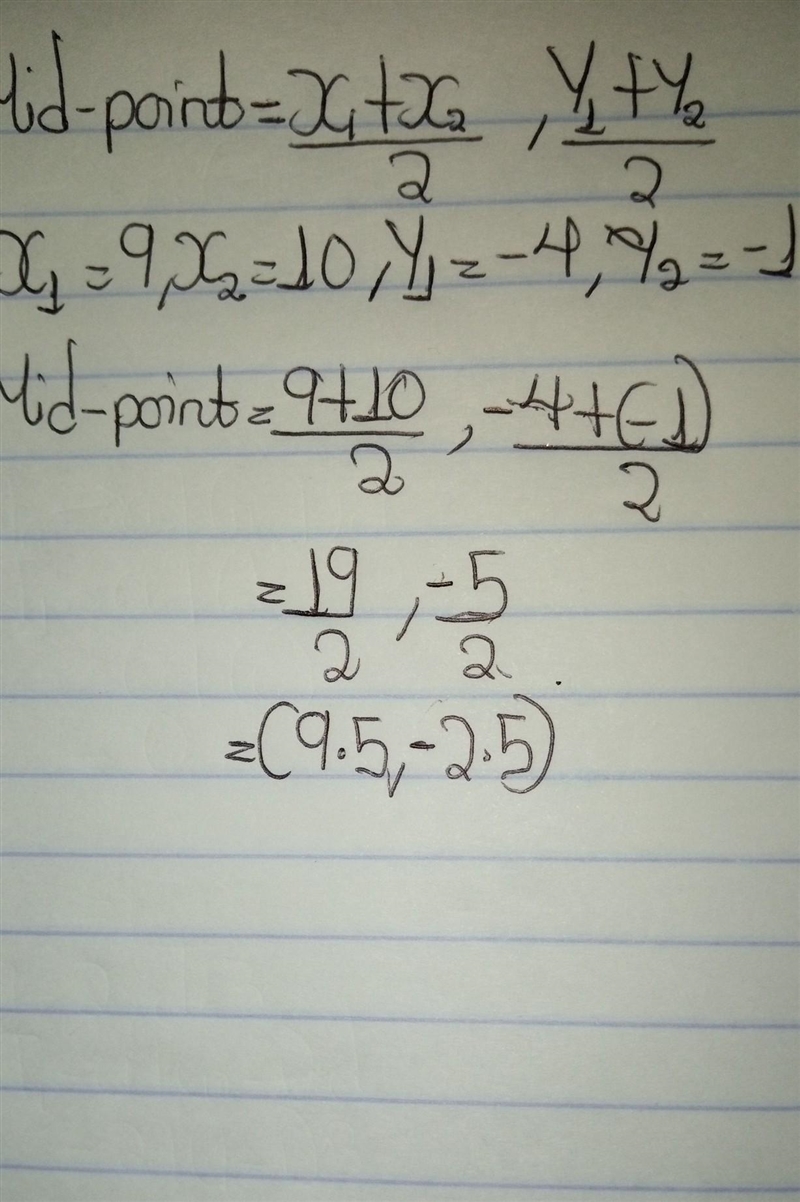 Mid-point = x₁+x₂/2 , Y₁+Y₂/2
x₁ = 9, x₂ = 10, Y₁ = -4, Y₂ = -1
Mid-point = 9+10/2 , -4+(-1)/2
= 19/2 , -5/2
= (9.5, -2.5)